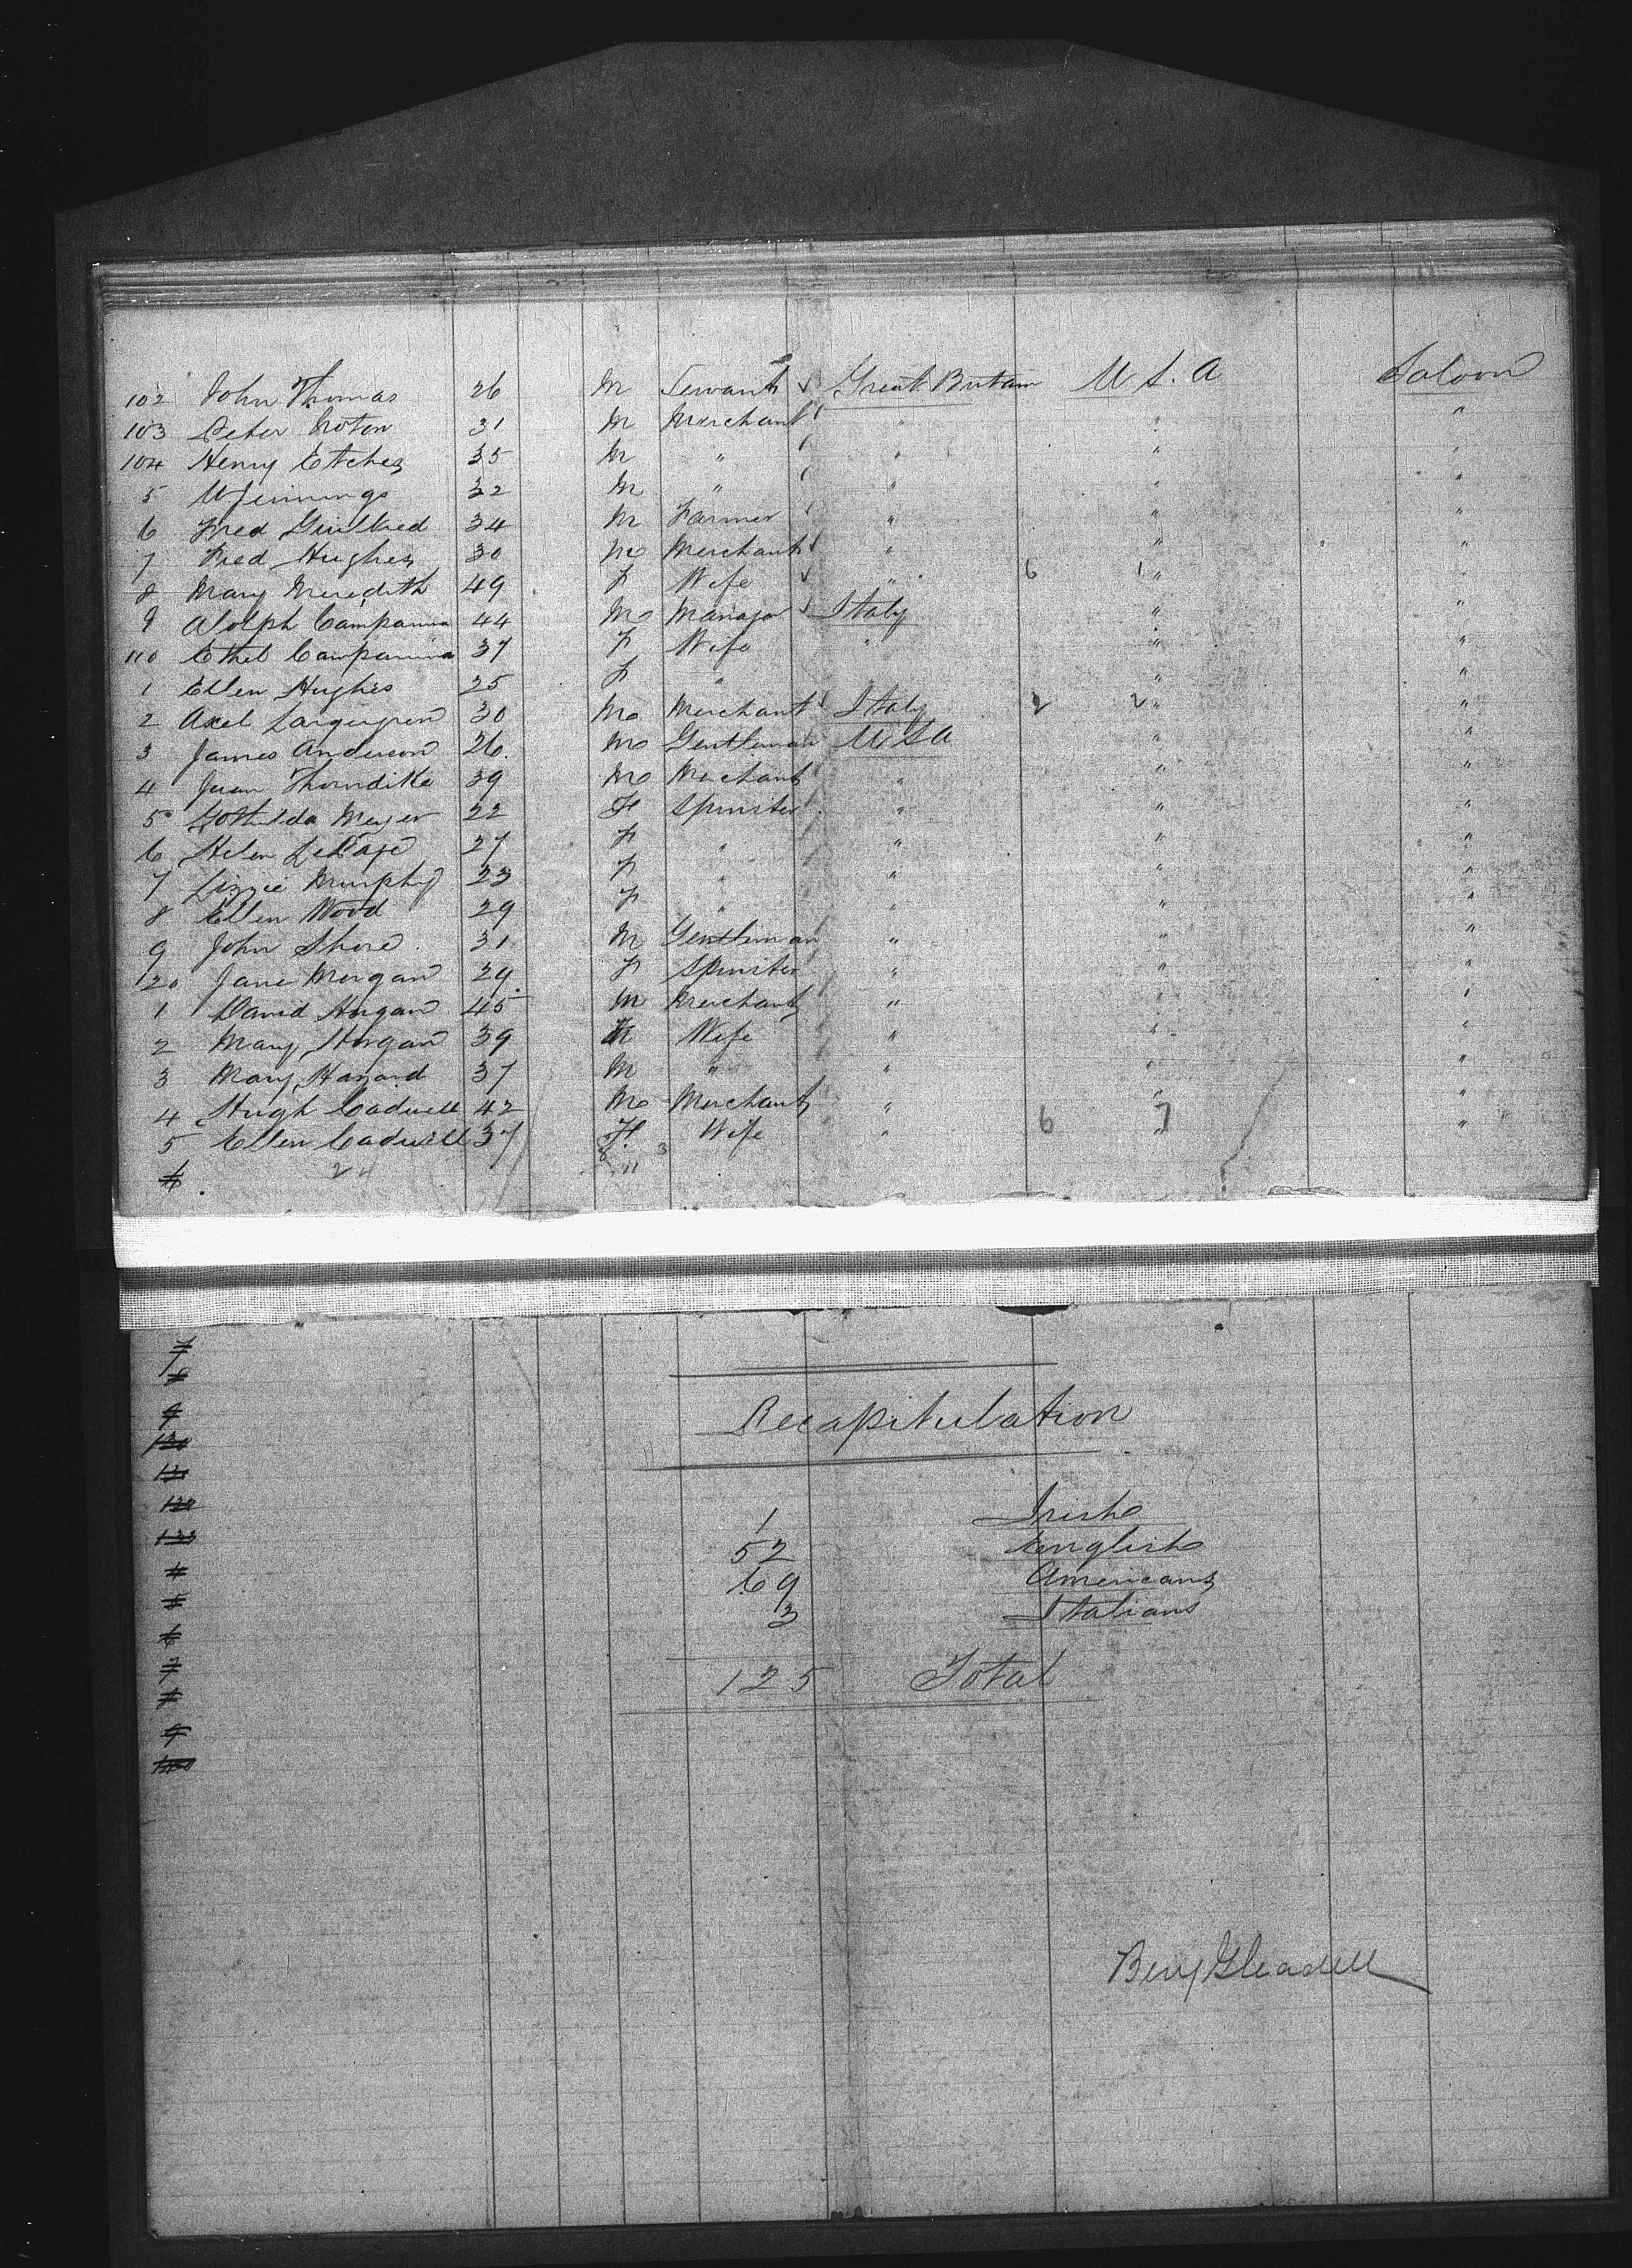 102 John Thomas 26 M Servant √ Great Britain U S. A Saloon
103 Peter Noton 31 M Merchant " " "
104 Henry Etches 35 M " " " "
5 W Jennings 32 M " " " "
6 Fred 34 M Farmer " " "
7 Fred Hughes 30 M Merchant " " "
8 Mary Meredith 49 F Wife √ " 6 1 "
9 Adolph Campanina 44 M Manager Italy " "
110 Ethel Campanina 37 F Wife " " "
1 Ellen Hughes 25 F " " "
2 Axel 30 M Merchant Italy 2 2 " "
3 James Anderson 26. M Gentleman U S A " "
4 Juan Thorndike 39 M Merchant " " "
5 Meyer 22 F Spinster " " "
6 Helen LePage 27 F " " " "
7 Lizzie Murphy 23 F " " " "
8 Ellen Wood 29 F " " " "
9 John Shore 31 M Gentleman " " "
120 Jane Morgan 29. F Spinster " " "
1 David Horgan 45 M Merchant " " "
2 Mary Horgan 39 Wife " " "
3 Mary Hazard 37 M " " " "
4 Hugh Cadwell 42 M Merchant " " "
5 Ellen Cadwell 37 F. Wife " 6 7 " "
6 24 8 11 3
7
8
9
130
131
132
133
4
5
6
7
8
9
140
Recapitulation
1 Irish
52 English
69 Americans
3 Italians
125 Total
Benj Gleadell